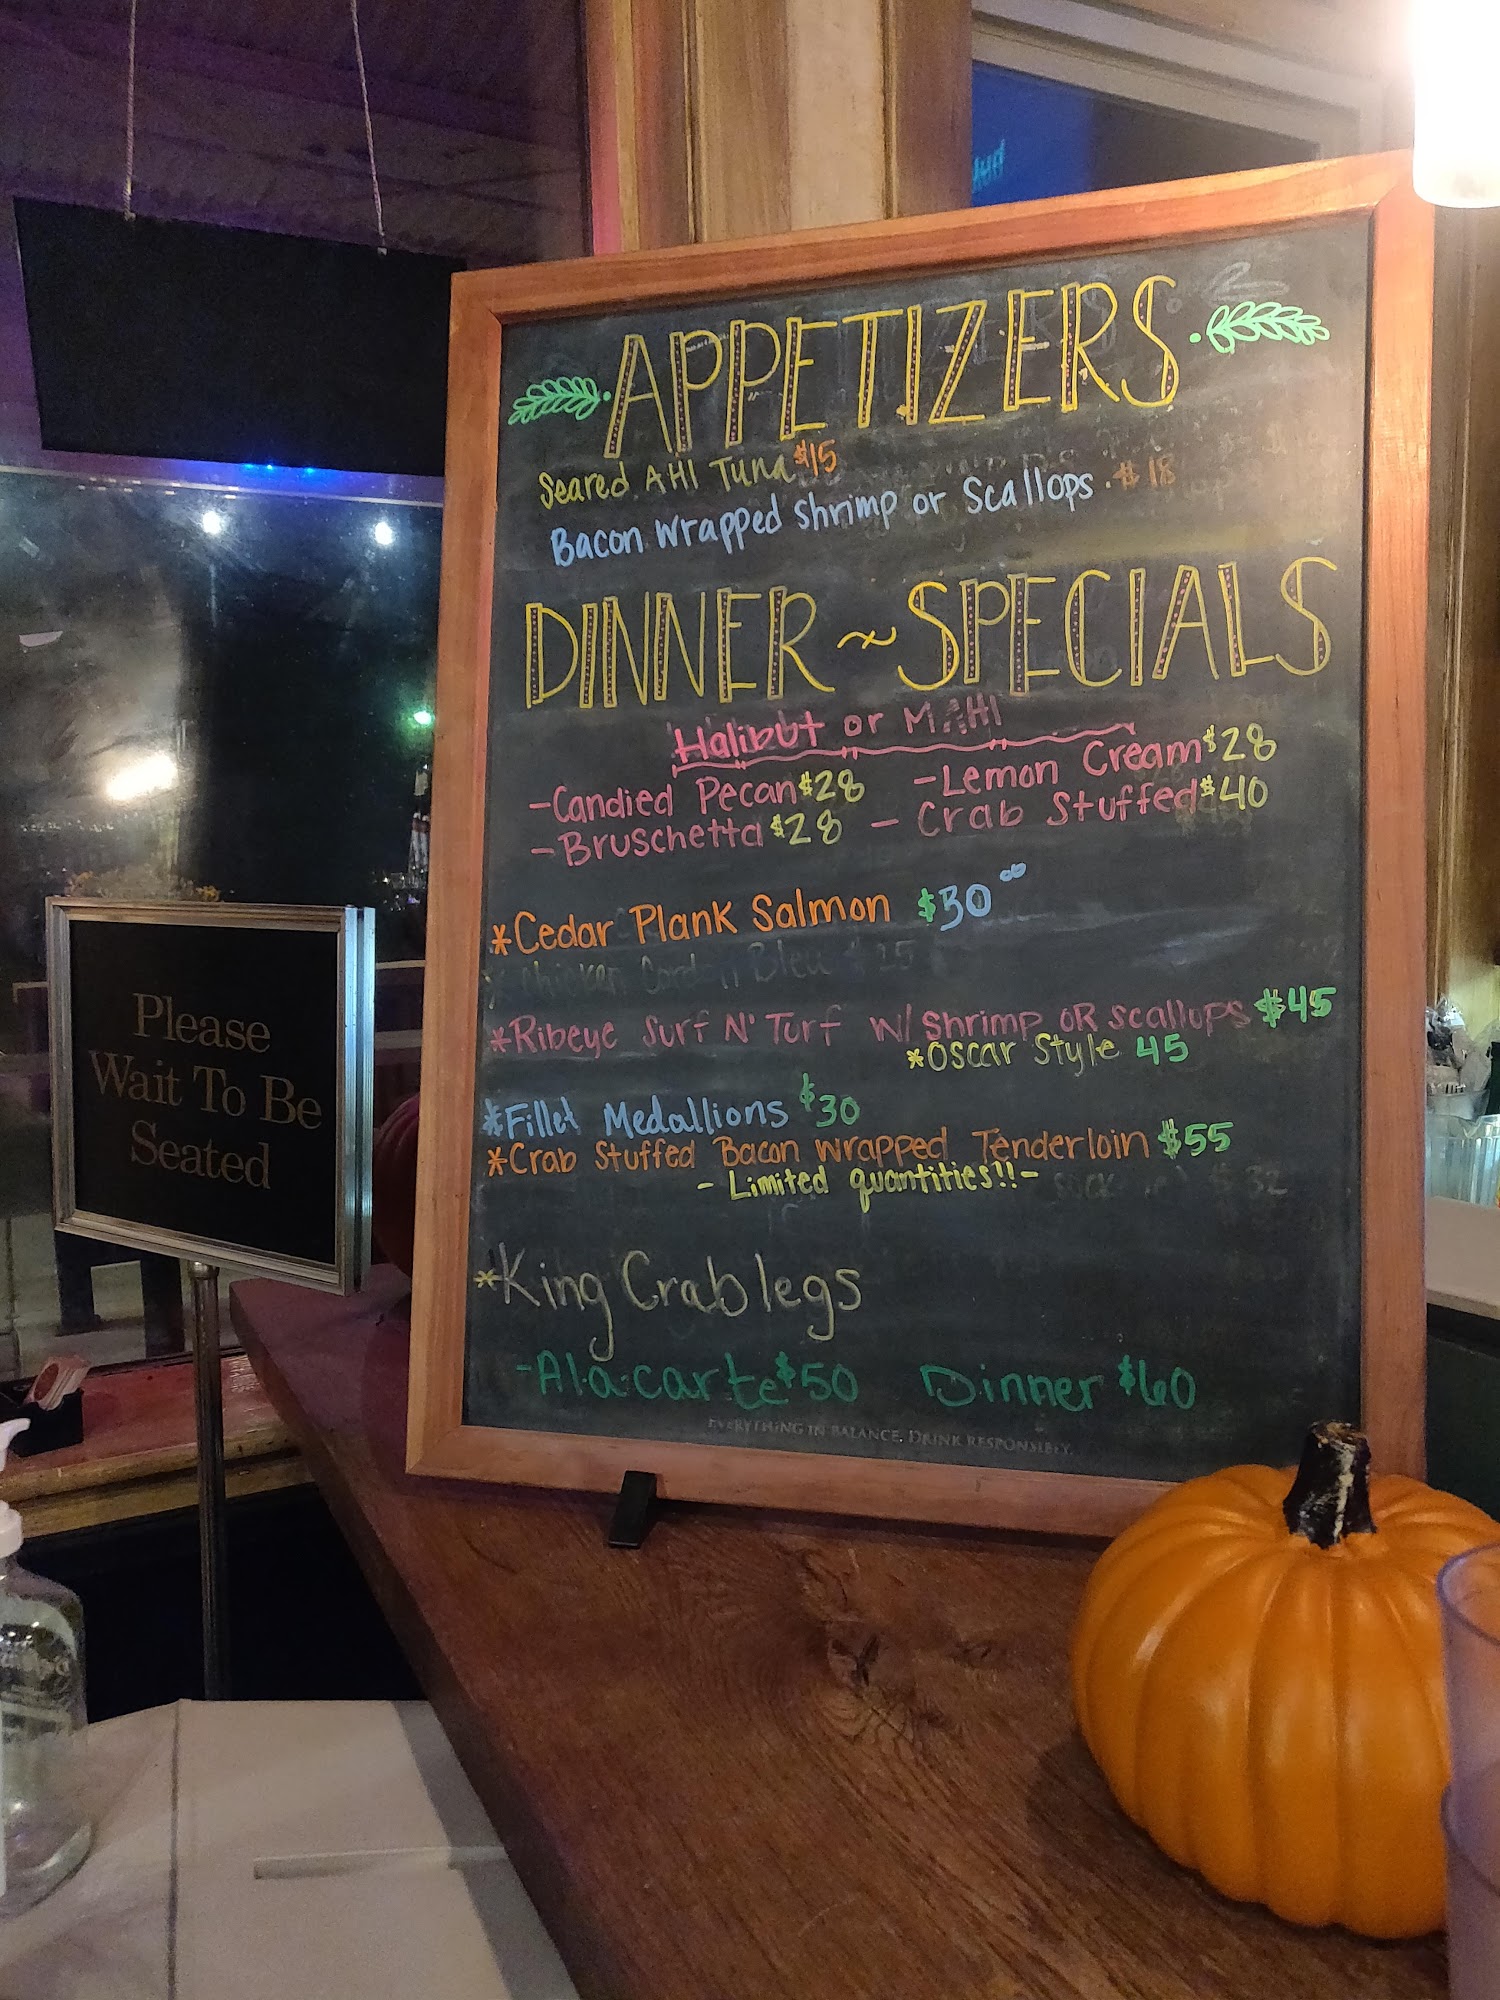 APPETIZERS
Seared AHI Tuna $15
Bacon Wrapped Shrimp or Scallops . $18
DINNER ~ SPECIALS
Halibut or MAHI
-Candied Pecan $28 -Lemon Cream $28
-Bruschetta $28 - Crab Stuffed $40
*Cedar Plank Salmon $30⁰⁰
* Chicken Cordon Bleu $25
*Ribeye Surf N' Turf W/ Shrimp OR Scallops $45
*Oscar Style 45
*Fillet Medallions $30
*Crab Stuffed Bacon Wrapped Tenderloin $55
- Limited quantities!! -
$32
*King Crab legs
-Al.a.carte $50 Dinner $60
EVERYTHING IN BALANCE. DRINK RESPONSIBLY.
Please
Wait To Be
Seated